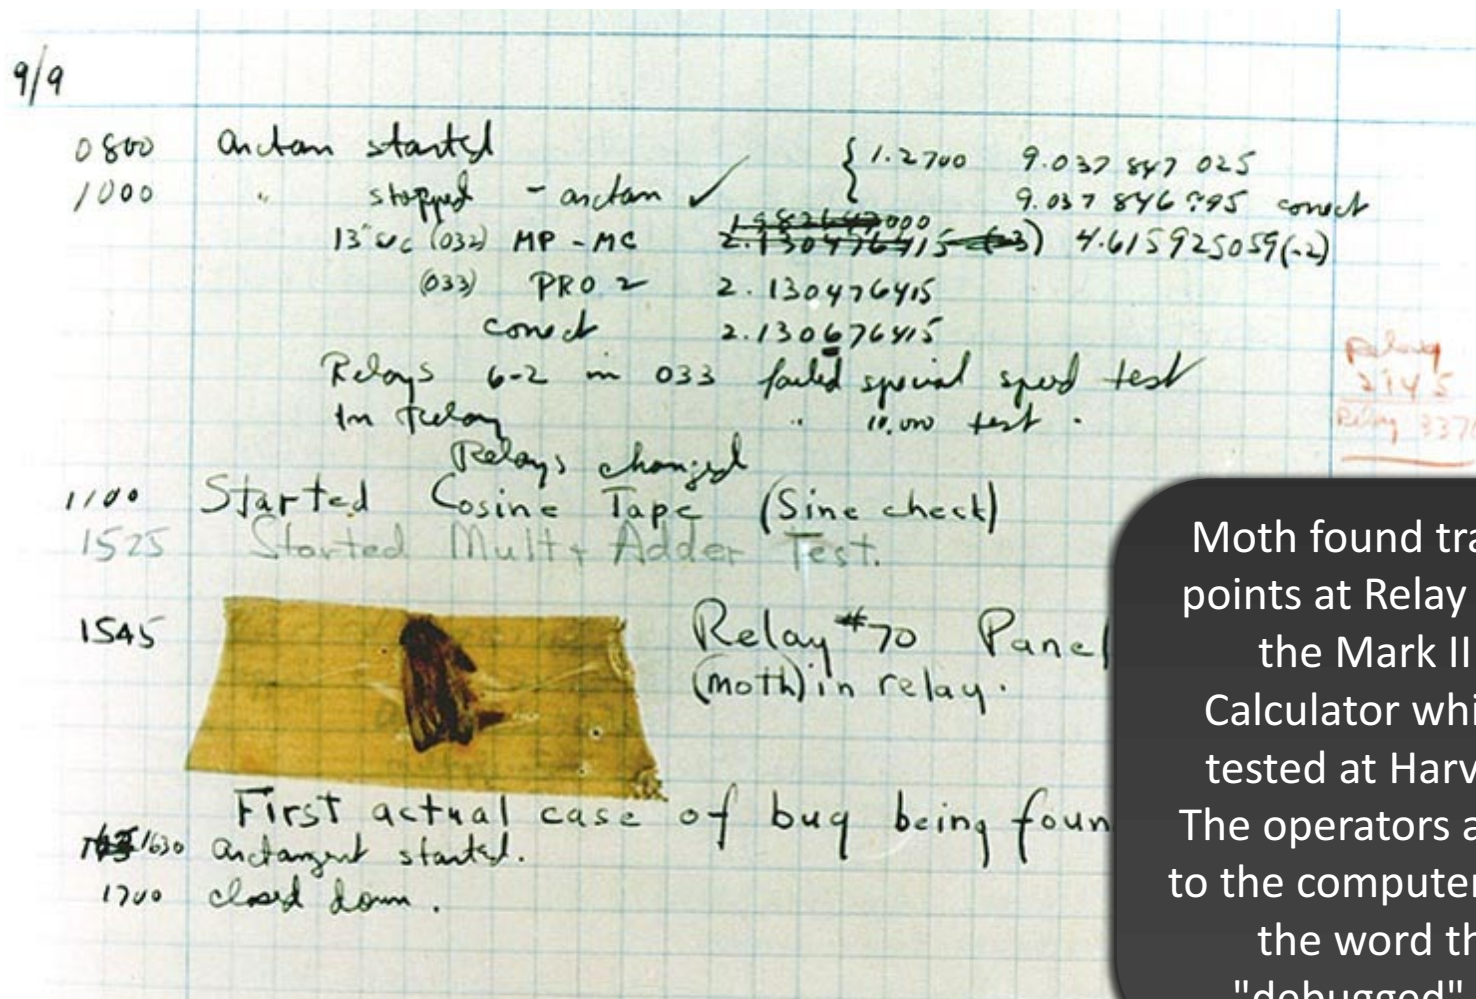 9/9
0800 arctan started { 1.2700 9.037 847 025
1000 " stopped - arctan ✓ 9.037 846 995 correct
13" sec (032) MP - MC 1.982647000 2.130476415 (-3) 4.615925059(-2)
(033) PRO 2 2.130476415
correct 2.130676415
Relays 6-2 in 033 failed special speed test
In Relay " 10,000 test .
Relay
Relays changed
1100 Started Cosine Tape (Sine check)
1525 Started Mult + Adder Test.
1545 Relay #70 Panel
(moth) in relay.
First actual case of bug being foun
1630 arctangent started.
1700 closed down .
Relay
2145
Relay 337
Moth found tra
points at Relay
the Mark II
Calculator whi
tested at Harv
The operators a
to the computer
the word th
"debugged"